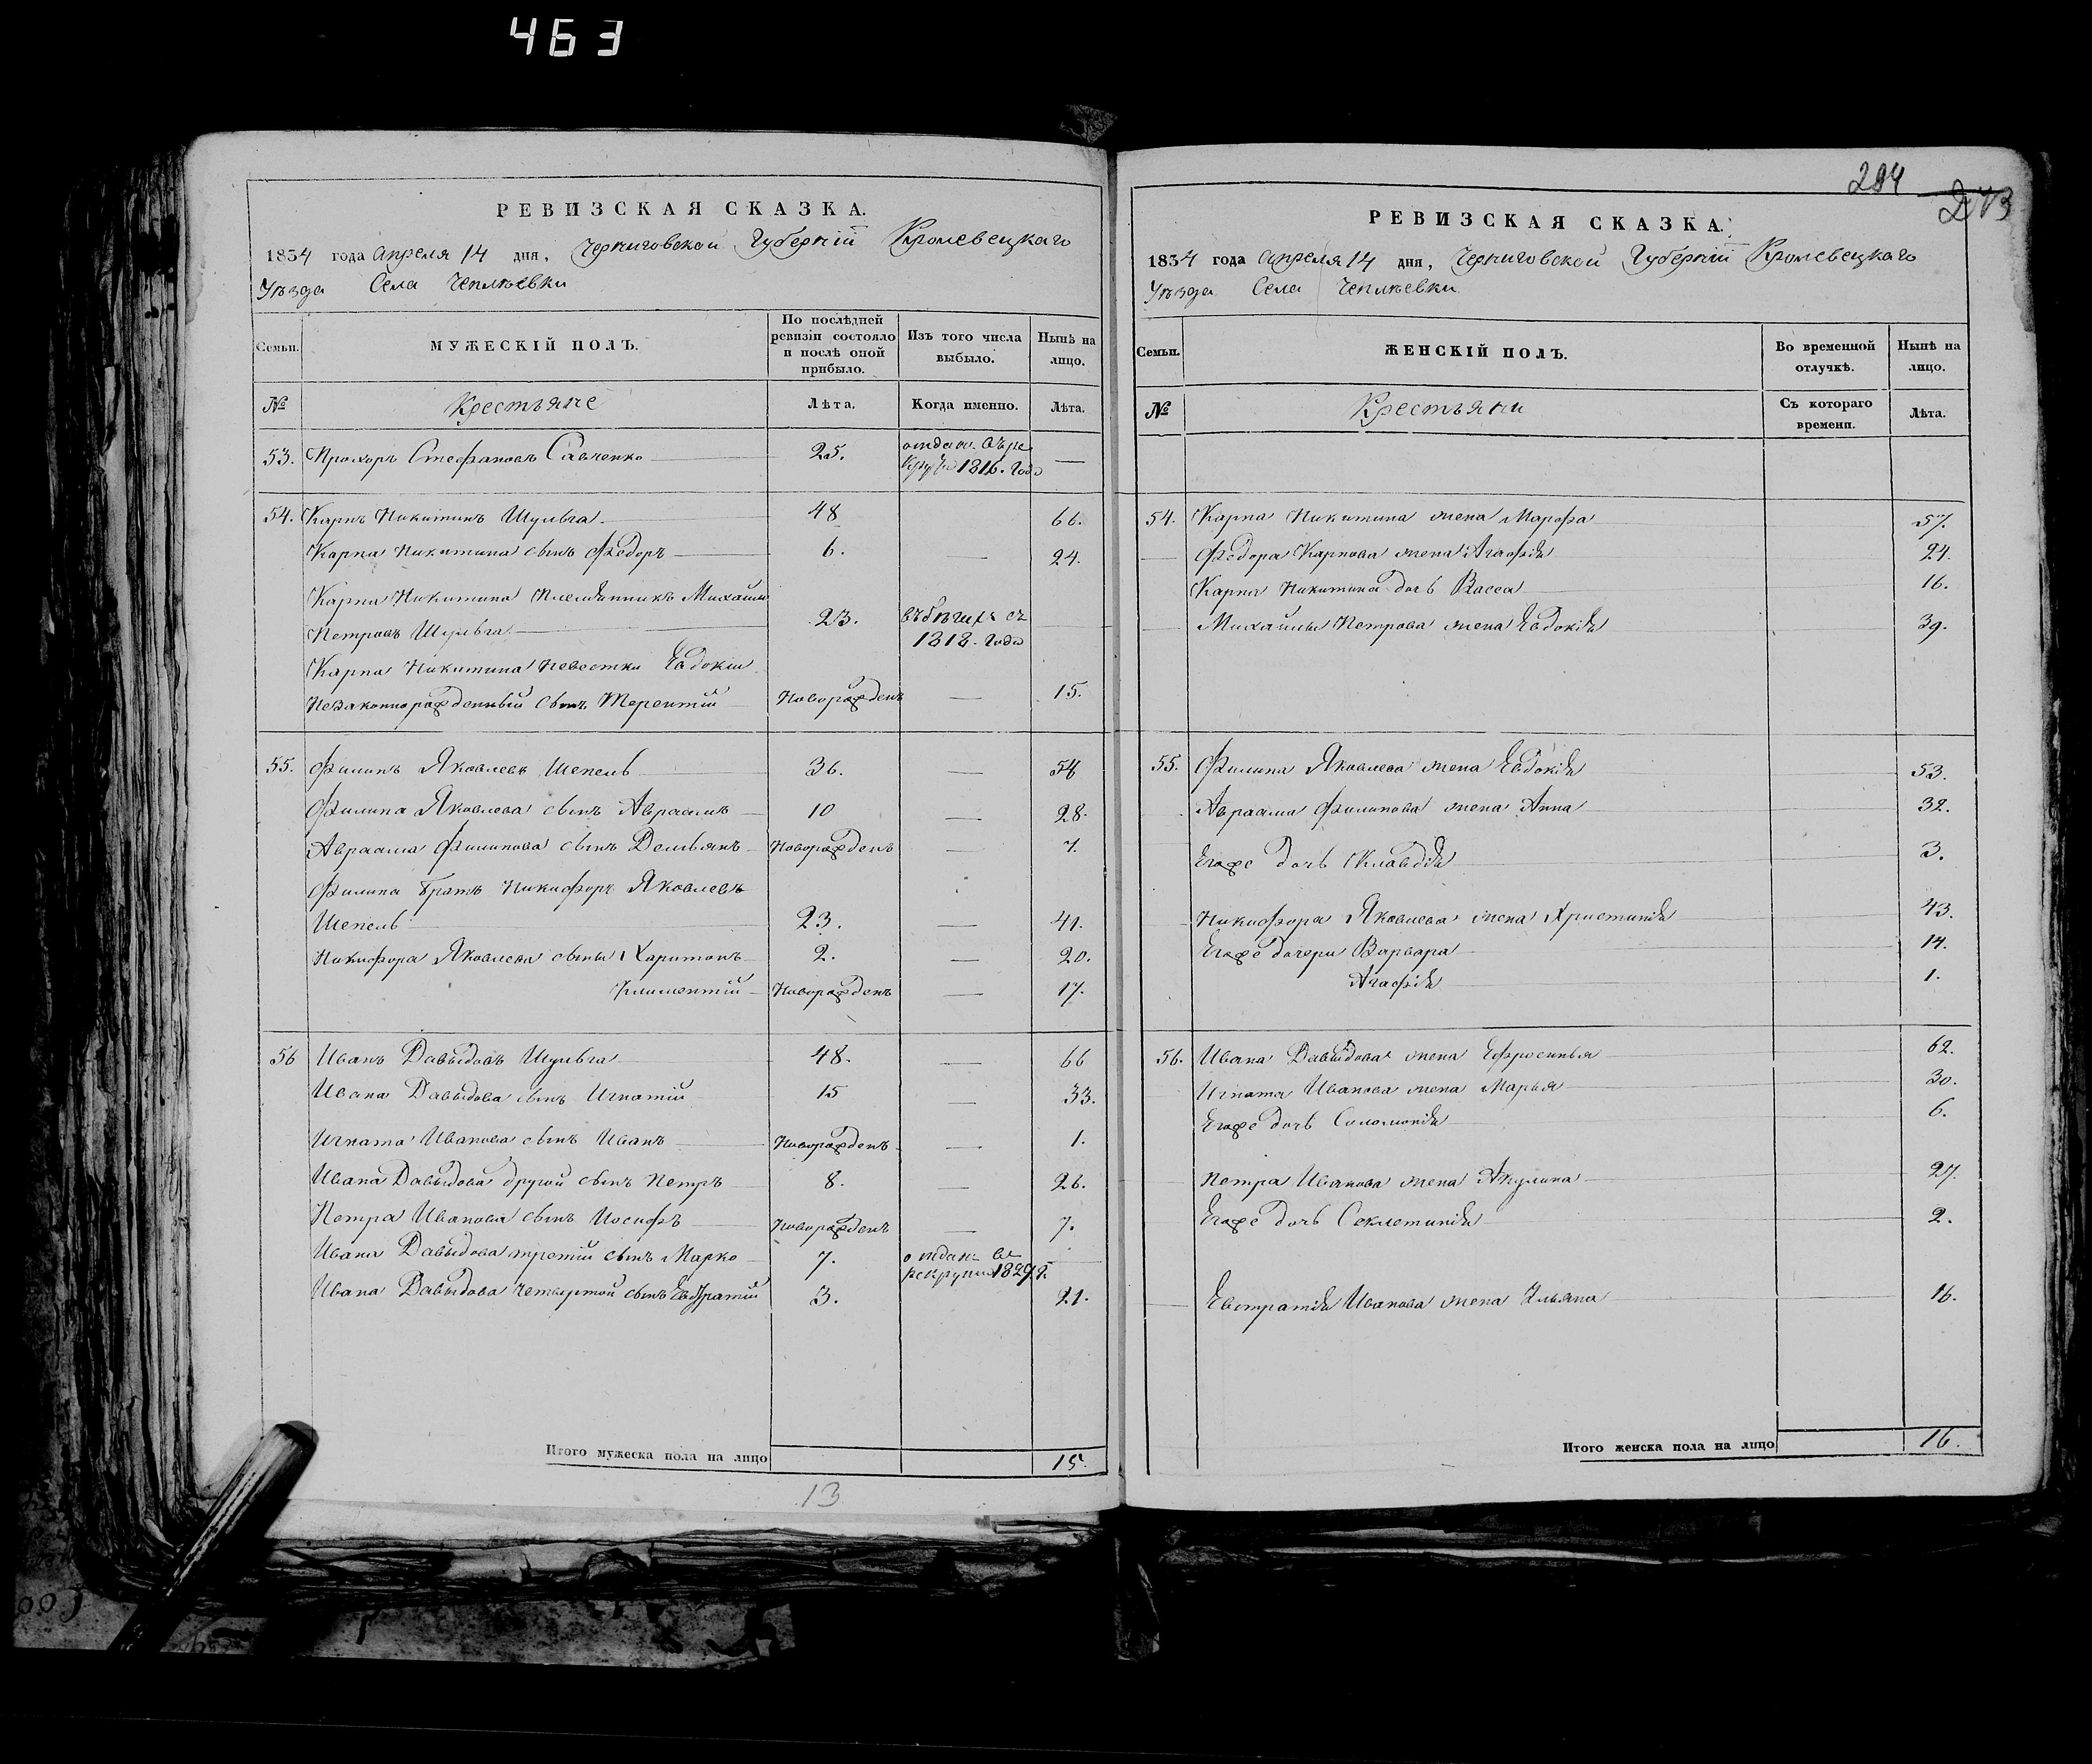 463
РЕВИЗСКАЯ СКАЗКА.
1834 года Апреля 14 дня, Черниговской Губерніи Кролевецкаго
Уѣзда Села Чеплѣевки
Семьи. МУЖЕСКІЙ ПОЛЪ. По послѣдней ревизіи состояло и послѣ оной прибыло. Изъ того числа выбыло. Нынѣ на лицо.
№ Крестьяне Лѣта. Когда именно. Лѣта.
53. Прохоръ Стефановъ Савченко 25. отдан. въ ре
круты 1816. года —
54. Карпъ Никитинъ Шульга 48 66.
Карпа Никитина сынъ Федоръ 6. — 24.
Карпа Никитина племянникъ Михаилъ
Петровъ Шульга 23. въ бѣгахъ съ
1818. года
Карпа Никитина невестки Евдокіи
незаконнорожденный сынъ Терентій Новорожденъ — 15.
55. Филипъ Яковлевъ Шепель 36. — 54
Филипа Яковлева сынъ Авраамъ 10 — 28.
Авраама Филипова сынъ Демьянъ Новорожденъ — 7.
Филипа братъ Никифоръ Яковлевъ
Шепель 23. — 41.
Никифора Яковлева сыны Харитонъ 2. — 20.
Климентій Новорожденъ — 17.
56 Иванъ Давыдовъ Шульга 48. — 66
Ивана Давыдова сынъ Игнатій 15 — 33.
Игната Иванова сынъ Иванъ Новорожденъ — 1.
Ивана Давыдова другой сынъ Петръ 8. — 26.
Петра Иванова сынъ Иосифъ Новорожденъ — 7.
Ивана Давыдова третій сынъ Марко 7. отдан. въ
рекруты 1829 г.
Ивана Давыдова четвертой сынъ Евстратій 3. 21.
Итого мужеска пола на лицо 15.
13
284
РЕВИЗСКАЯ СКАЗКА.
1834 года Апреля 14 дня, Черниговской Губерніи Кролевецкаго
Уѣзда Села Чеплѣевки
Семьи. ЖЕНСКІЙ ПОЛЪ. Во временной отлучкѣ. Нынѣ на лицо.
№ Крестьяни Съ котораго времени. Лѣта.
54. Карпа Никитина жена Марфа 57.
Федора Карпова жена Агафія 24.
Карпа Никитина дочь Васса 16.
Михайлы Петрова жена Евдокія 39.
55. Филипа Яковлева жена Евдокія 53.
Авраама Филипова жена Анна 32.
Егоже дочь Клавдія 3.
Никифора Яковлева жена Христинія 43.
Егоже дочери Варвара 14.
Агафія 1.
56. Ивана Давыдова жена Ефросинья 62.
Игната Иванова жена Марья 30.
Егоже дочь Соломонія 6.
Петра Иванова жена Акулина 27.
Егоже дочь Секлетинія 2.
Евстратія Иванова жена Ульяна 16.
Итого женска пола на лицо 16.